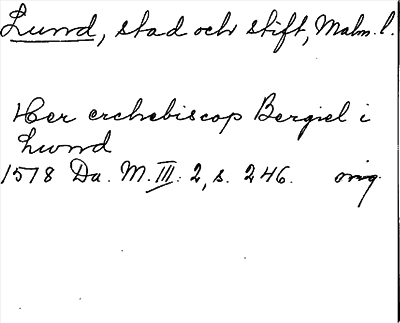 Lund, stad och stift, Malm. l.
Her erchebiscop Bergiel i
Lwnd
1518 Da. M. III: 2, s. 246. orig.